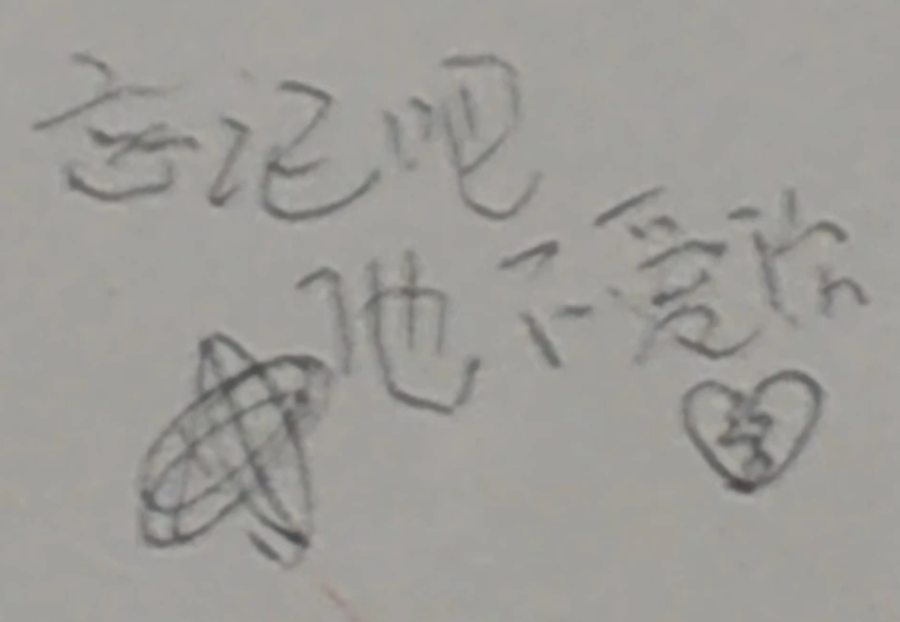 忘记吧
他不爱你